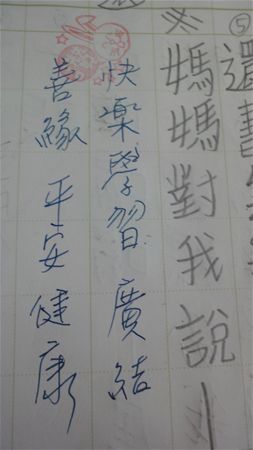 ⑤
還書
媽媽對我說
快樂學習 廣結
善緣 平安健康